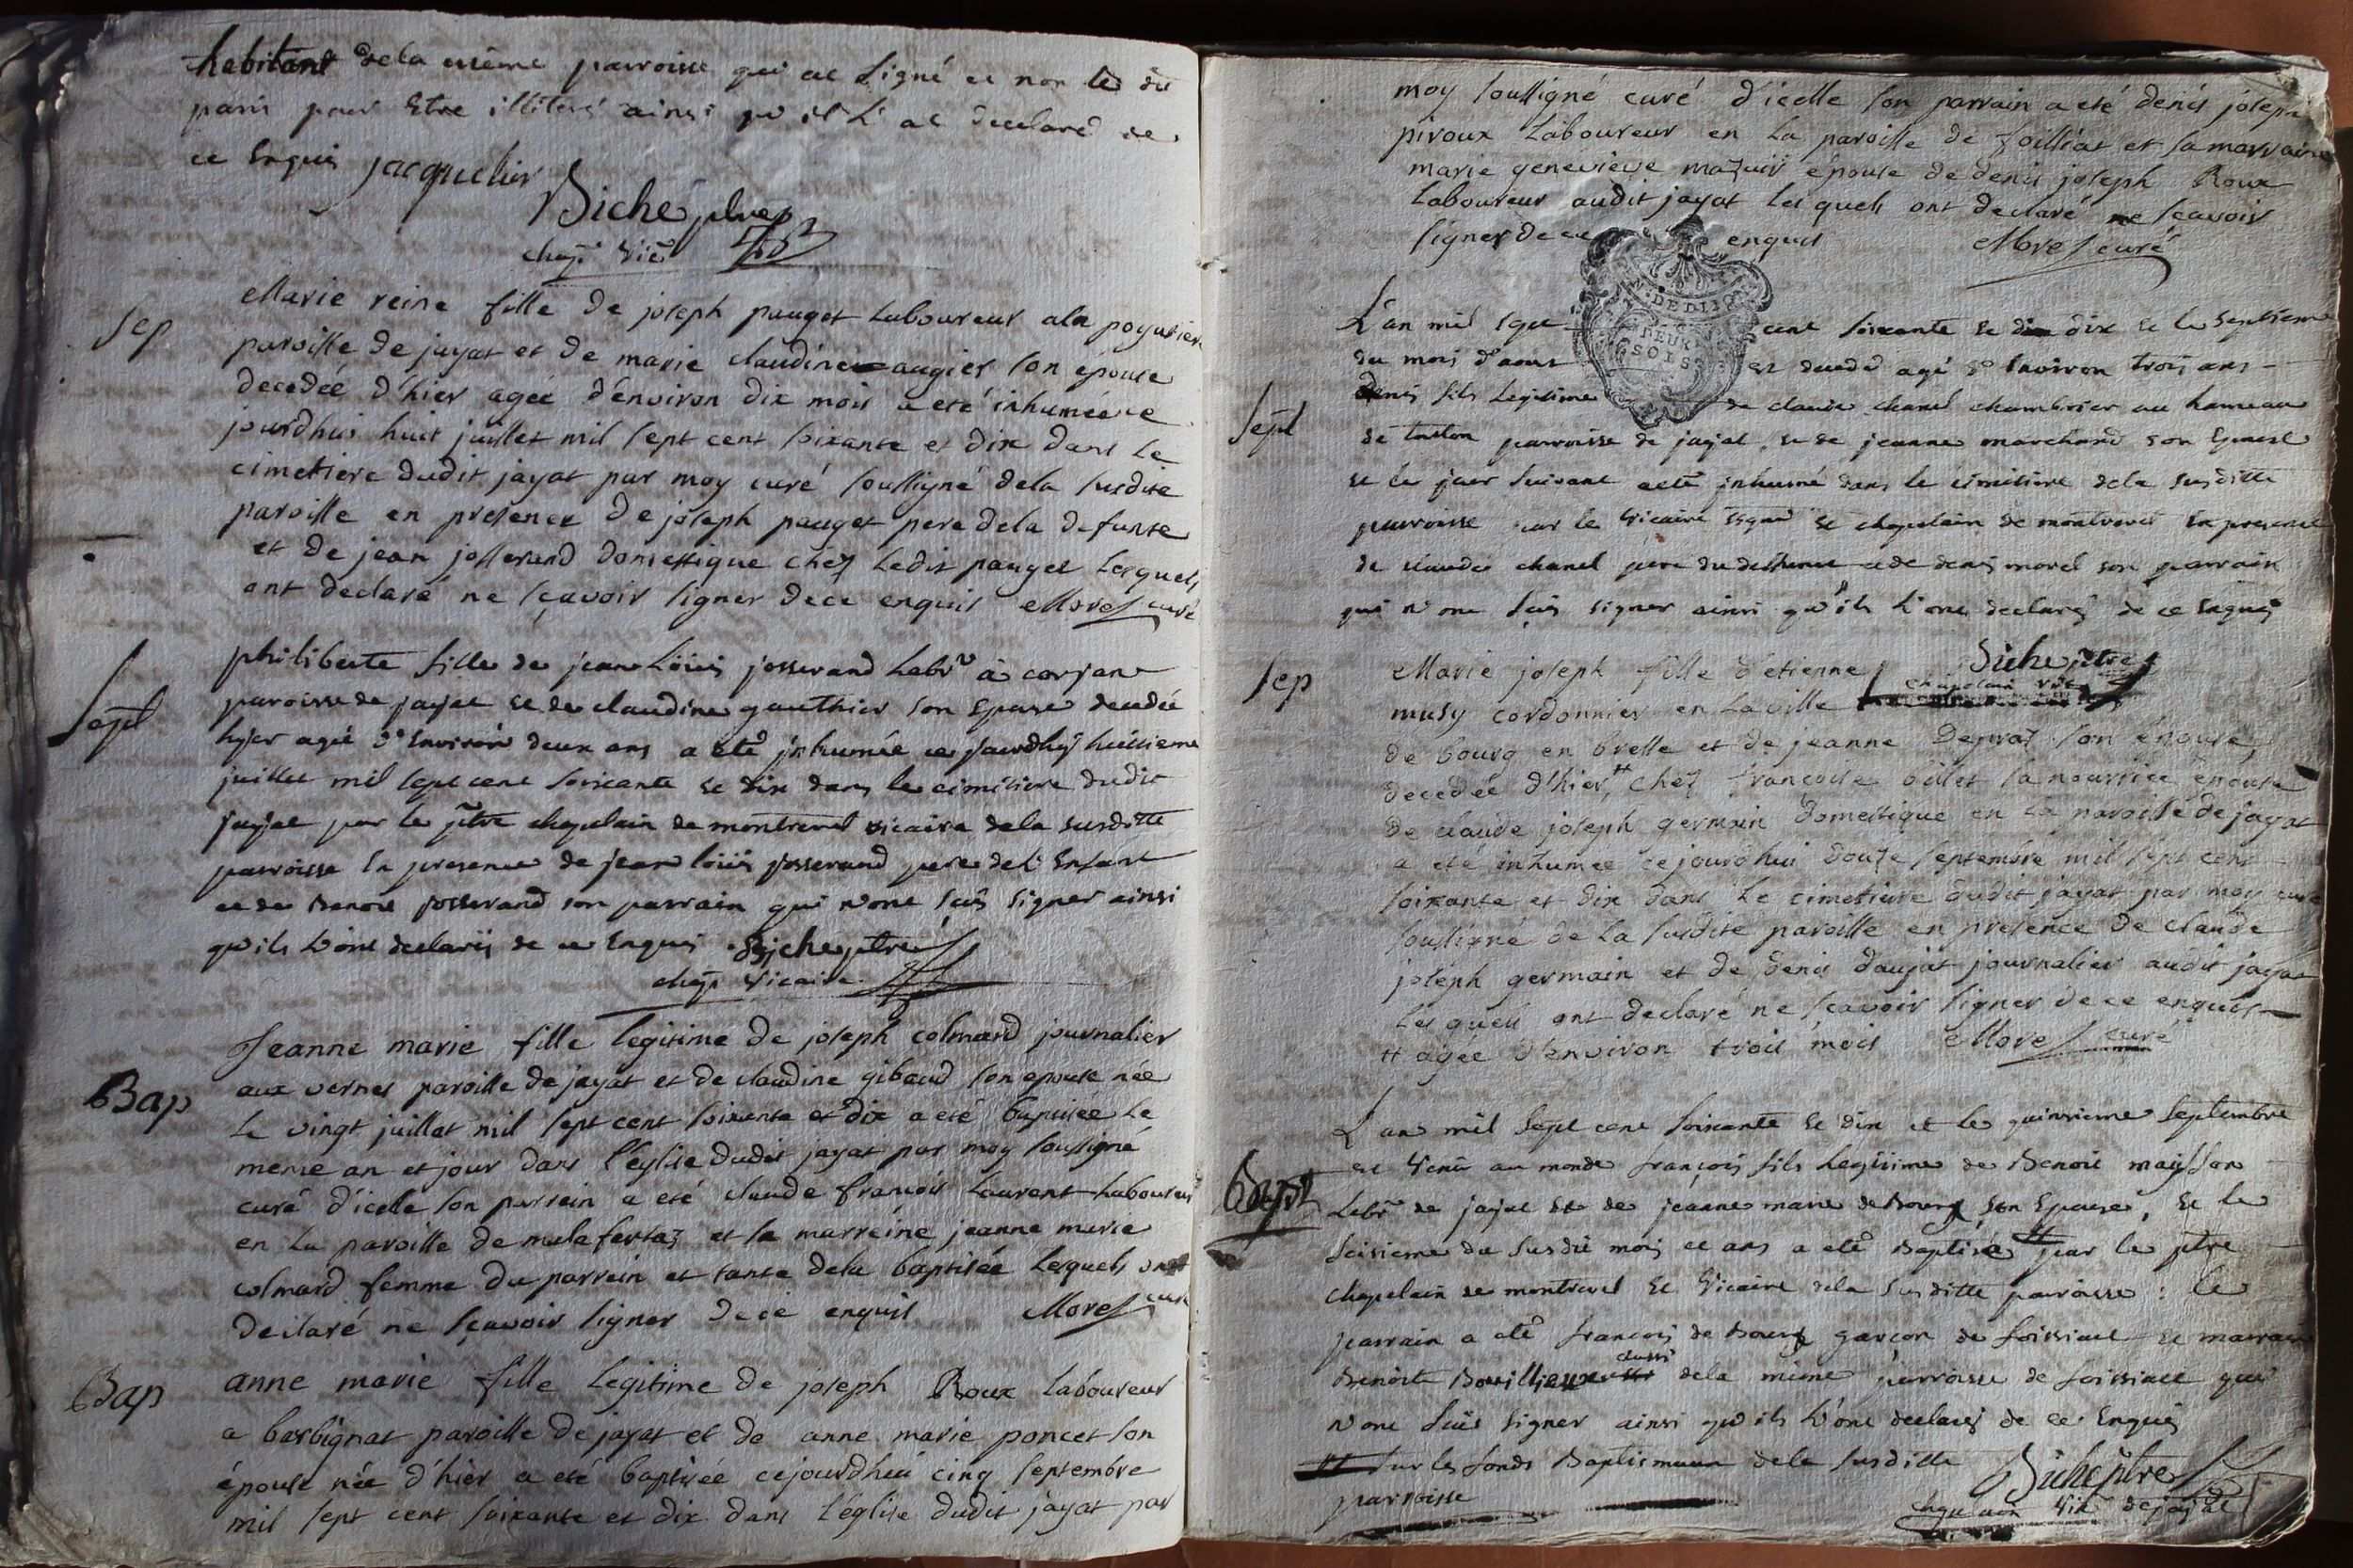 habitant dela même parroisse qui at signé et non le dit
paris pour Etre illiteré ainsi qu'il L'at declaré de
ce Enquis jacquelier
Biché ptre
chap. vic.
Sep
Marie reine fille de joseph pauget Laboureur ala
paroisse de jayat et de marie claudine augier son épouse
decedée d'hier agée d'environ dix mois a eté inhumée ce
jourdhui huit juillet mil sept cent soixante et dix dans Le
cimetiere dudit jayat par moy curé soussigné dela susdite
paroisse en presence de joseph pauget pere dela defunte
et de jean josserand domestique chéz Ledit pauget Lesquels
ont declaré ne sçavoir signer de ce enquis Morel curé
Sept
philiberte fille de jean Loüis josserand Labr à carjan
paroisse de jayat et de claudine gauthier son Epouse decedée
hyer agée d'Environ deux ans a eté inhumée ce jourdhuj huitieme
juillet mil sept cent soixante et dix dans le cimitiere dudit
jayat par le ptre chapelain de montrevel vicaire dela susditte
parroisse En presence de jean loüis josserand pere del'Enfant
et de Benoit josserand son parrain qui n'ont sçus signer ainsi
qu'ils L'ont declaréj de ce Enquis Biche ptre
chap. vicaire
Bap
Jeanne marie fille Legitime de joseph colmard journalier
aux vernes paroisse de jayat et de claudine gibaud son epouse née
Le vingt juillet mil sept cent soixante et dix a eté baptisée Le
meme an et jour dans l'eglise dudit jayat par moy soussigné
curé d'icelle son parrein a eté claude françois Laurent Laboureur
en La paroisse de malafertaz et sa marreine jeanne marie
colmard femme du parrein et tante dela baptisée Lesquels ont
declaré ne sçavoir signer de ce enquis Morel curé
Bap
anne marie fille Legitime de joseph Roux Laboureur
a barbignat paroisse de jayat et de anne marie poncet son
épouse née d'hier a eté baptisée cejourdhui cinq septembre
mil sept cent soixante et dix dans L'église dudit jayat par
moy soussigné curé d'icelle son parrain a eté denis joseph
piroux Laboureur en La paroisse de foissiat et sa marraine
marie genevieve mazuir épouse de denis joseph Roux
Laboureur audit jayat Lesquels ont declaré ne sçavoir
signer de ce enquis Morel curé
DEUX
SOLS
L'an mil sept cent soixante et dix et le septieme
du mois d'aout est decedé agé d'Environ trois ans
Sept
denis fils Legitime de claude chanel chambrier au hameau
de parroisse de jayat et de jeanne marchand son Epouse
et le jour suivant a eté inhumé dans le cimitiere dela susditte
parroisse par le vicaire signé et chapelain de montrevel En presence
de claude chanel pere du deffunt et de denis morel son parrain
qui n'ont sçus signer ainsi qu'ils L'ont declaréj de ce Enquis
Biche ptre
chapelain vic.
Sep
Marie joseph fille d'etienne
musy cordonnier en La ville
de bourg en bresse et de jeanne Depraz son épouse
decedée d'hier # chéz francoise billet sa nourrice épouse
de claude joseph germain domestique en La paroisse de jayat
a eté inhumée cejourdhui douze septembre mil sept cent
soixante et dix dans Le cimetiere dudit jayat par moy curé
soussigné de La susdite paroisse en presence de claude
joseph germain et de denis daujat journalier audit jayat
Lesquels ont declaré ne sçavoir signer de ce enquis
# agée d'environ trois mois Morel curé
L'an mil Sept cent soixante et dix et le quinsieme Septembre
Bapt
est venu au monde françois fils Legitime de Benoit
Labr de jayat et de jeanne marie de Bourg son Epouse, et le
seisieme du susdit mois et ans a eté Baptisé # par le ptre
chapelain de montrevel et vicaire dela susditte parroisse : le
parrain a eté françois de Bourg garçon de foissiat et marraine
Benoite aussi dela même parroisse de foissiat qui
n'ont sçus signer ainsi qu'ils L'ont declaréj de ce Enquis
# sur les fonds Baptismaux dela susditte
parroisse
Biche ptre
chapelain vic. de jayat